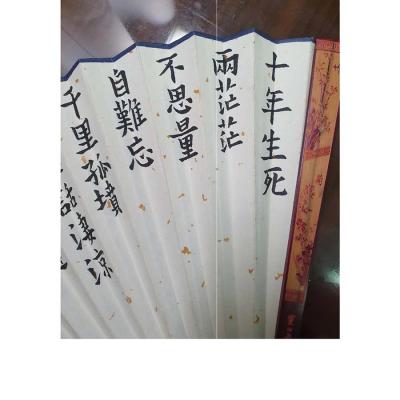 十年生死
兩茫茫
不思量
自難忘
千里孤墳
話淒涼